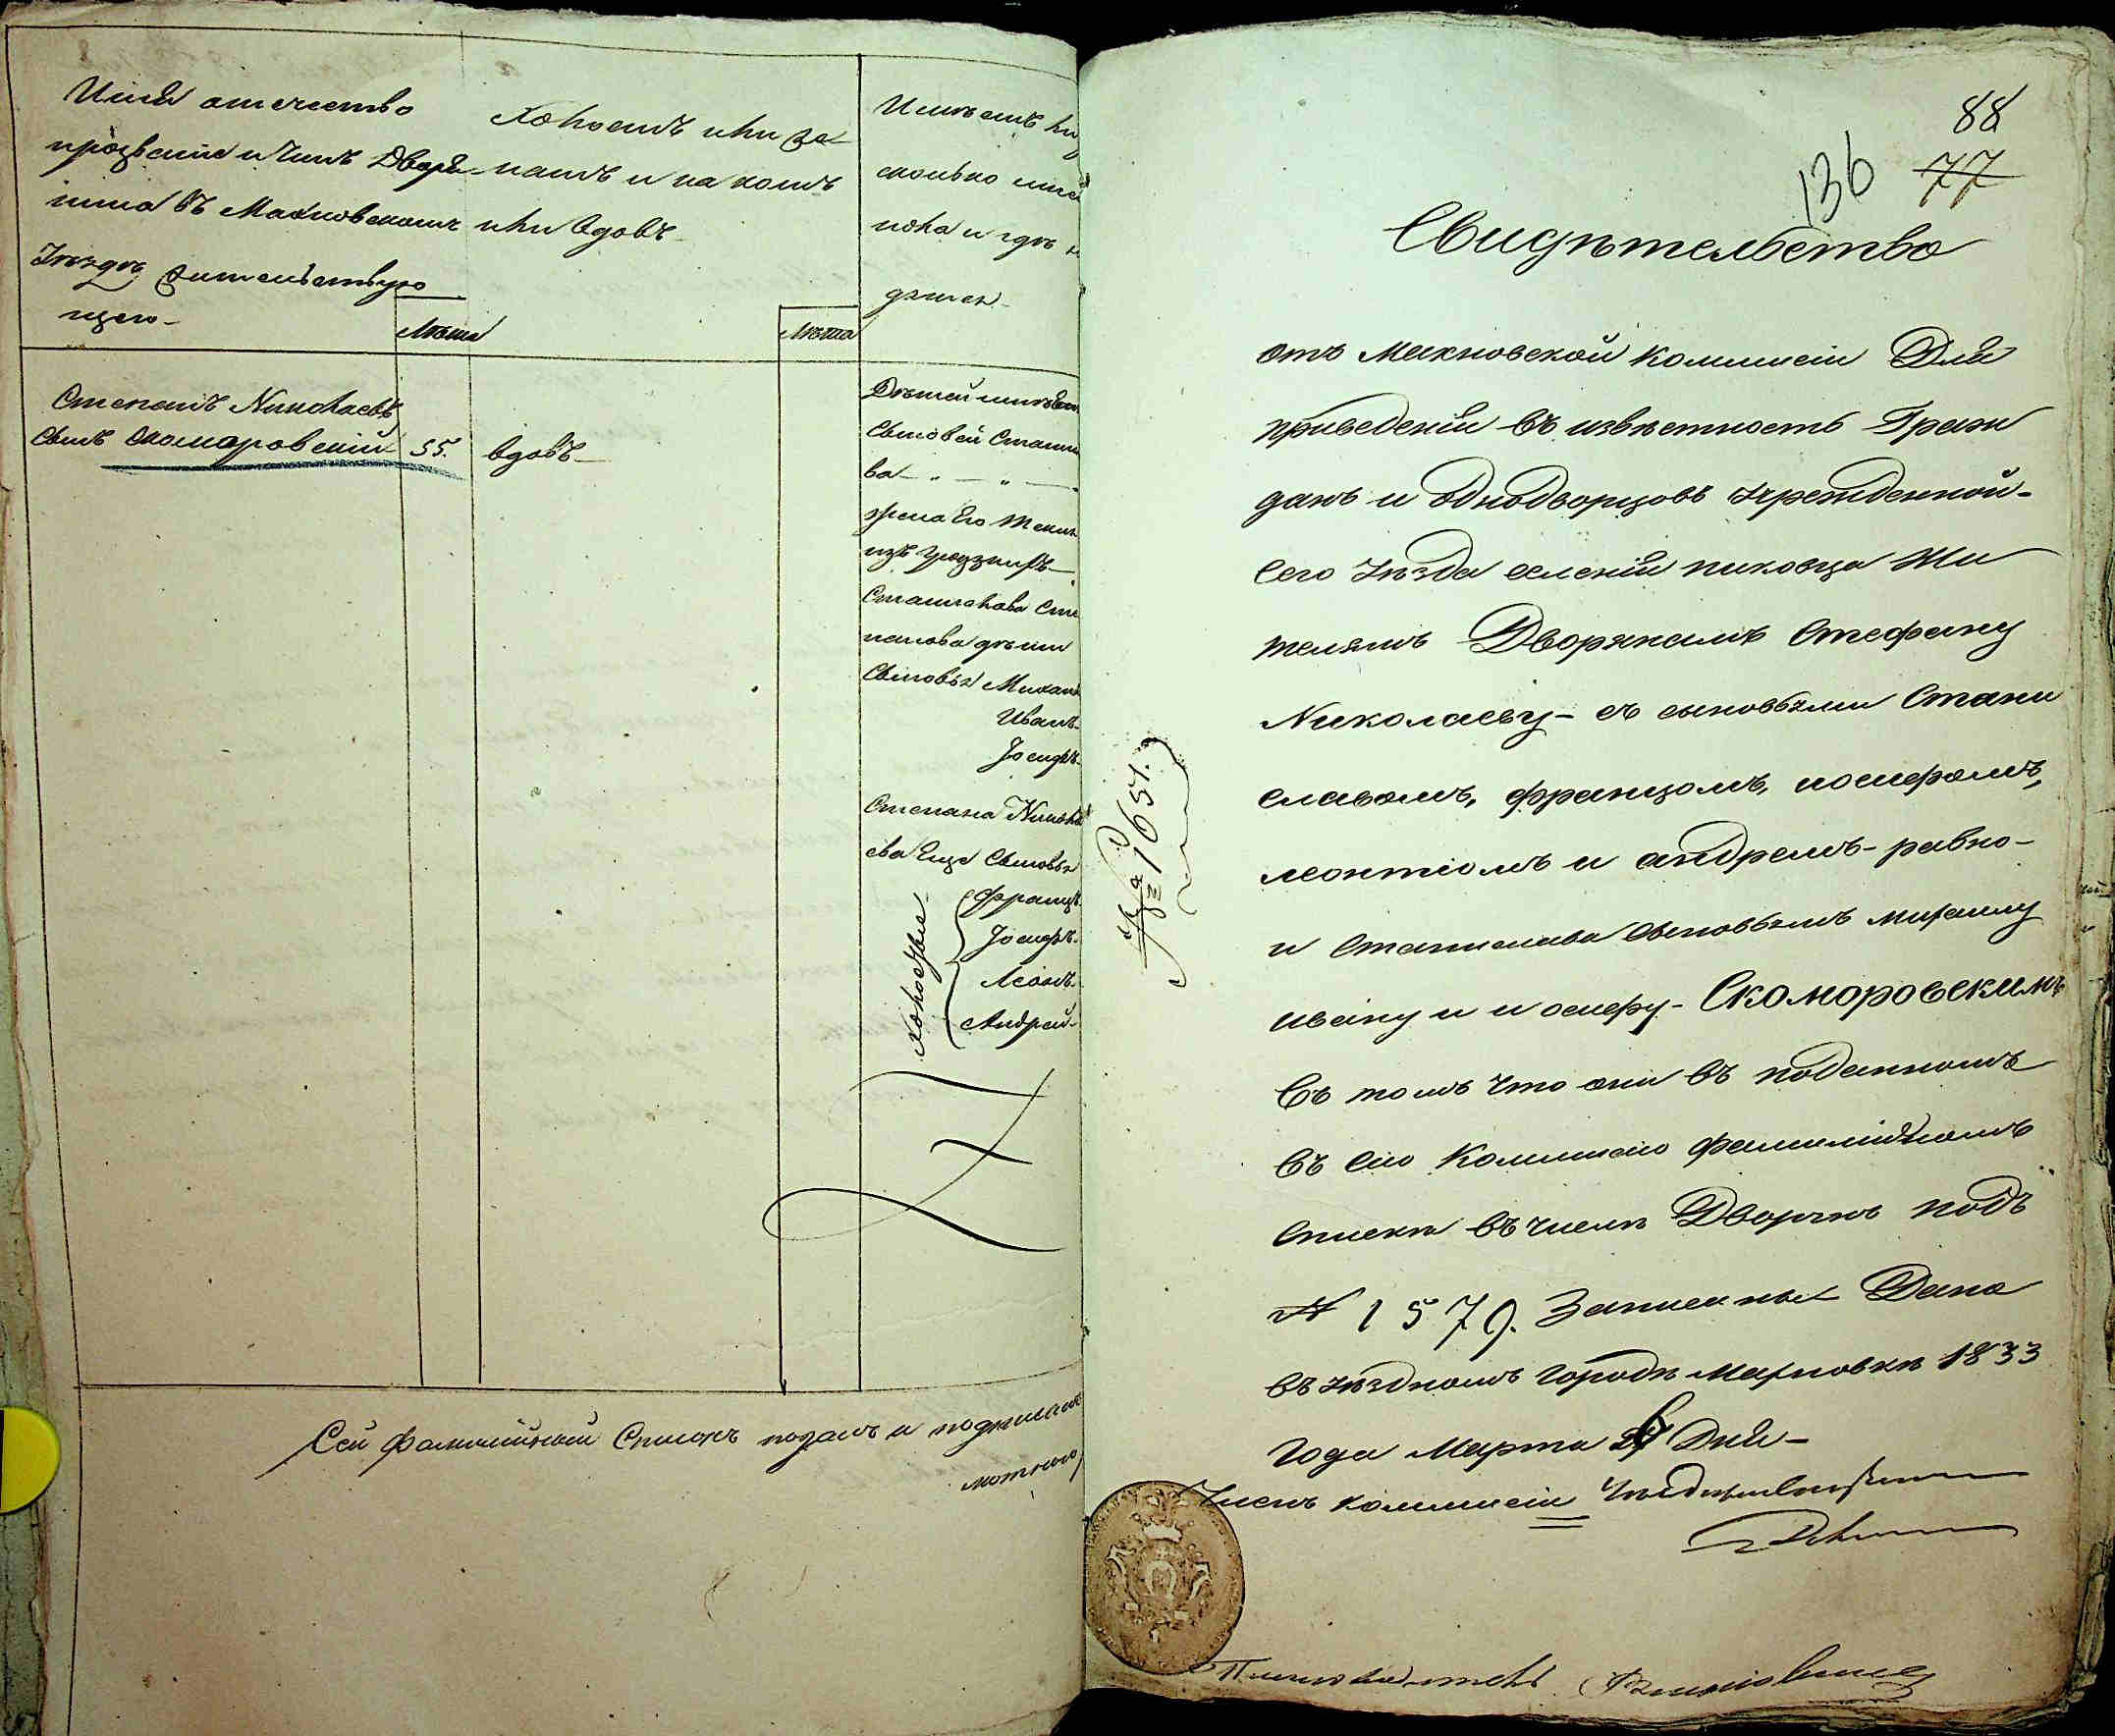 Имя отечество
прозвание и чинъ Дворя-
нина въ Махновскомъ
Уѣздѣ жительствую
щего-
Лѣта
Холостъ или же-
натъ и на комъ
или вдовъ-
Лѣта
Имѣетъ ли
сколько
пола и гдѣ
Степанъ Николаевъ
сынъ Скоморовскій
55.
вдовъ-
Дѣтей
Сыновей Стани
ва
жена Его
изъ
Станислава Сте
панова дѣти
Сыновья Михаилъ
Иванъ-
Іосифъ-
Степана Никола
ева Еще Сыновья
Францъ-
Іосифъ-
Леонъ-
Андрей-
холостые-
Сей Фамилійный Списокъ поданъ и подписанъ
88
136 77
Свидѣтельство
отъ Махновской Коммисіи Для
приведенія въ извѣстность Граж
данъ и Однодворцовъ Учрежденной-
Сего Уѣзда селенія пиковца Жи
телямъ Дворянамъ Стефану
Николаеву- съ сыновьями Стани
славомъ, Францомъ, иосифомъ,
леонтіомъ и андреемъ- равно-
и Станислава Сыновьямъ михаилу
ивану и иосифу- Скоморовскимъ
Въ томъ что они въ поданномъ
въ Сію Коммисію Фамилійномъ
Списке въ числе Дворянъ подъ
№ 1579. Записаны Дано
въ уѣздномъ городе Махновке 1833
года Марта Дня-
Членъ Коммисіи
№ 1654.